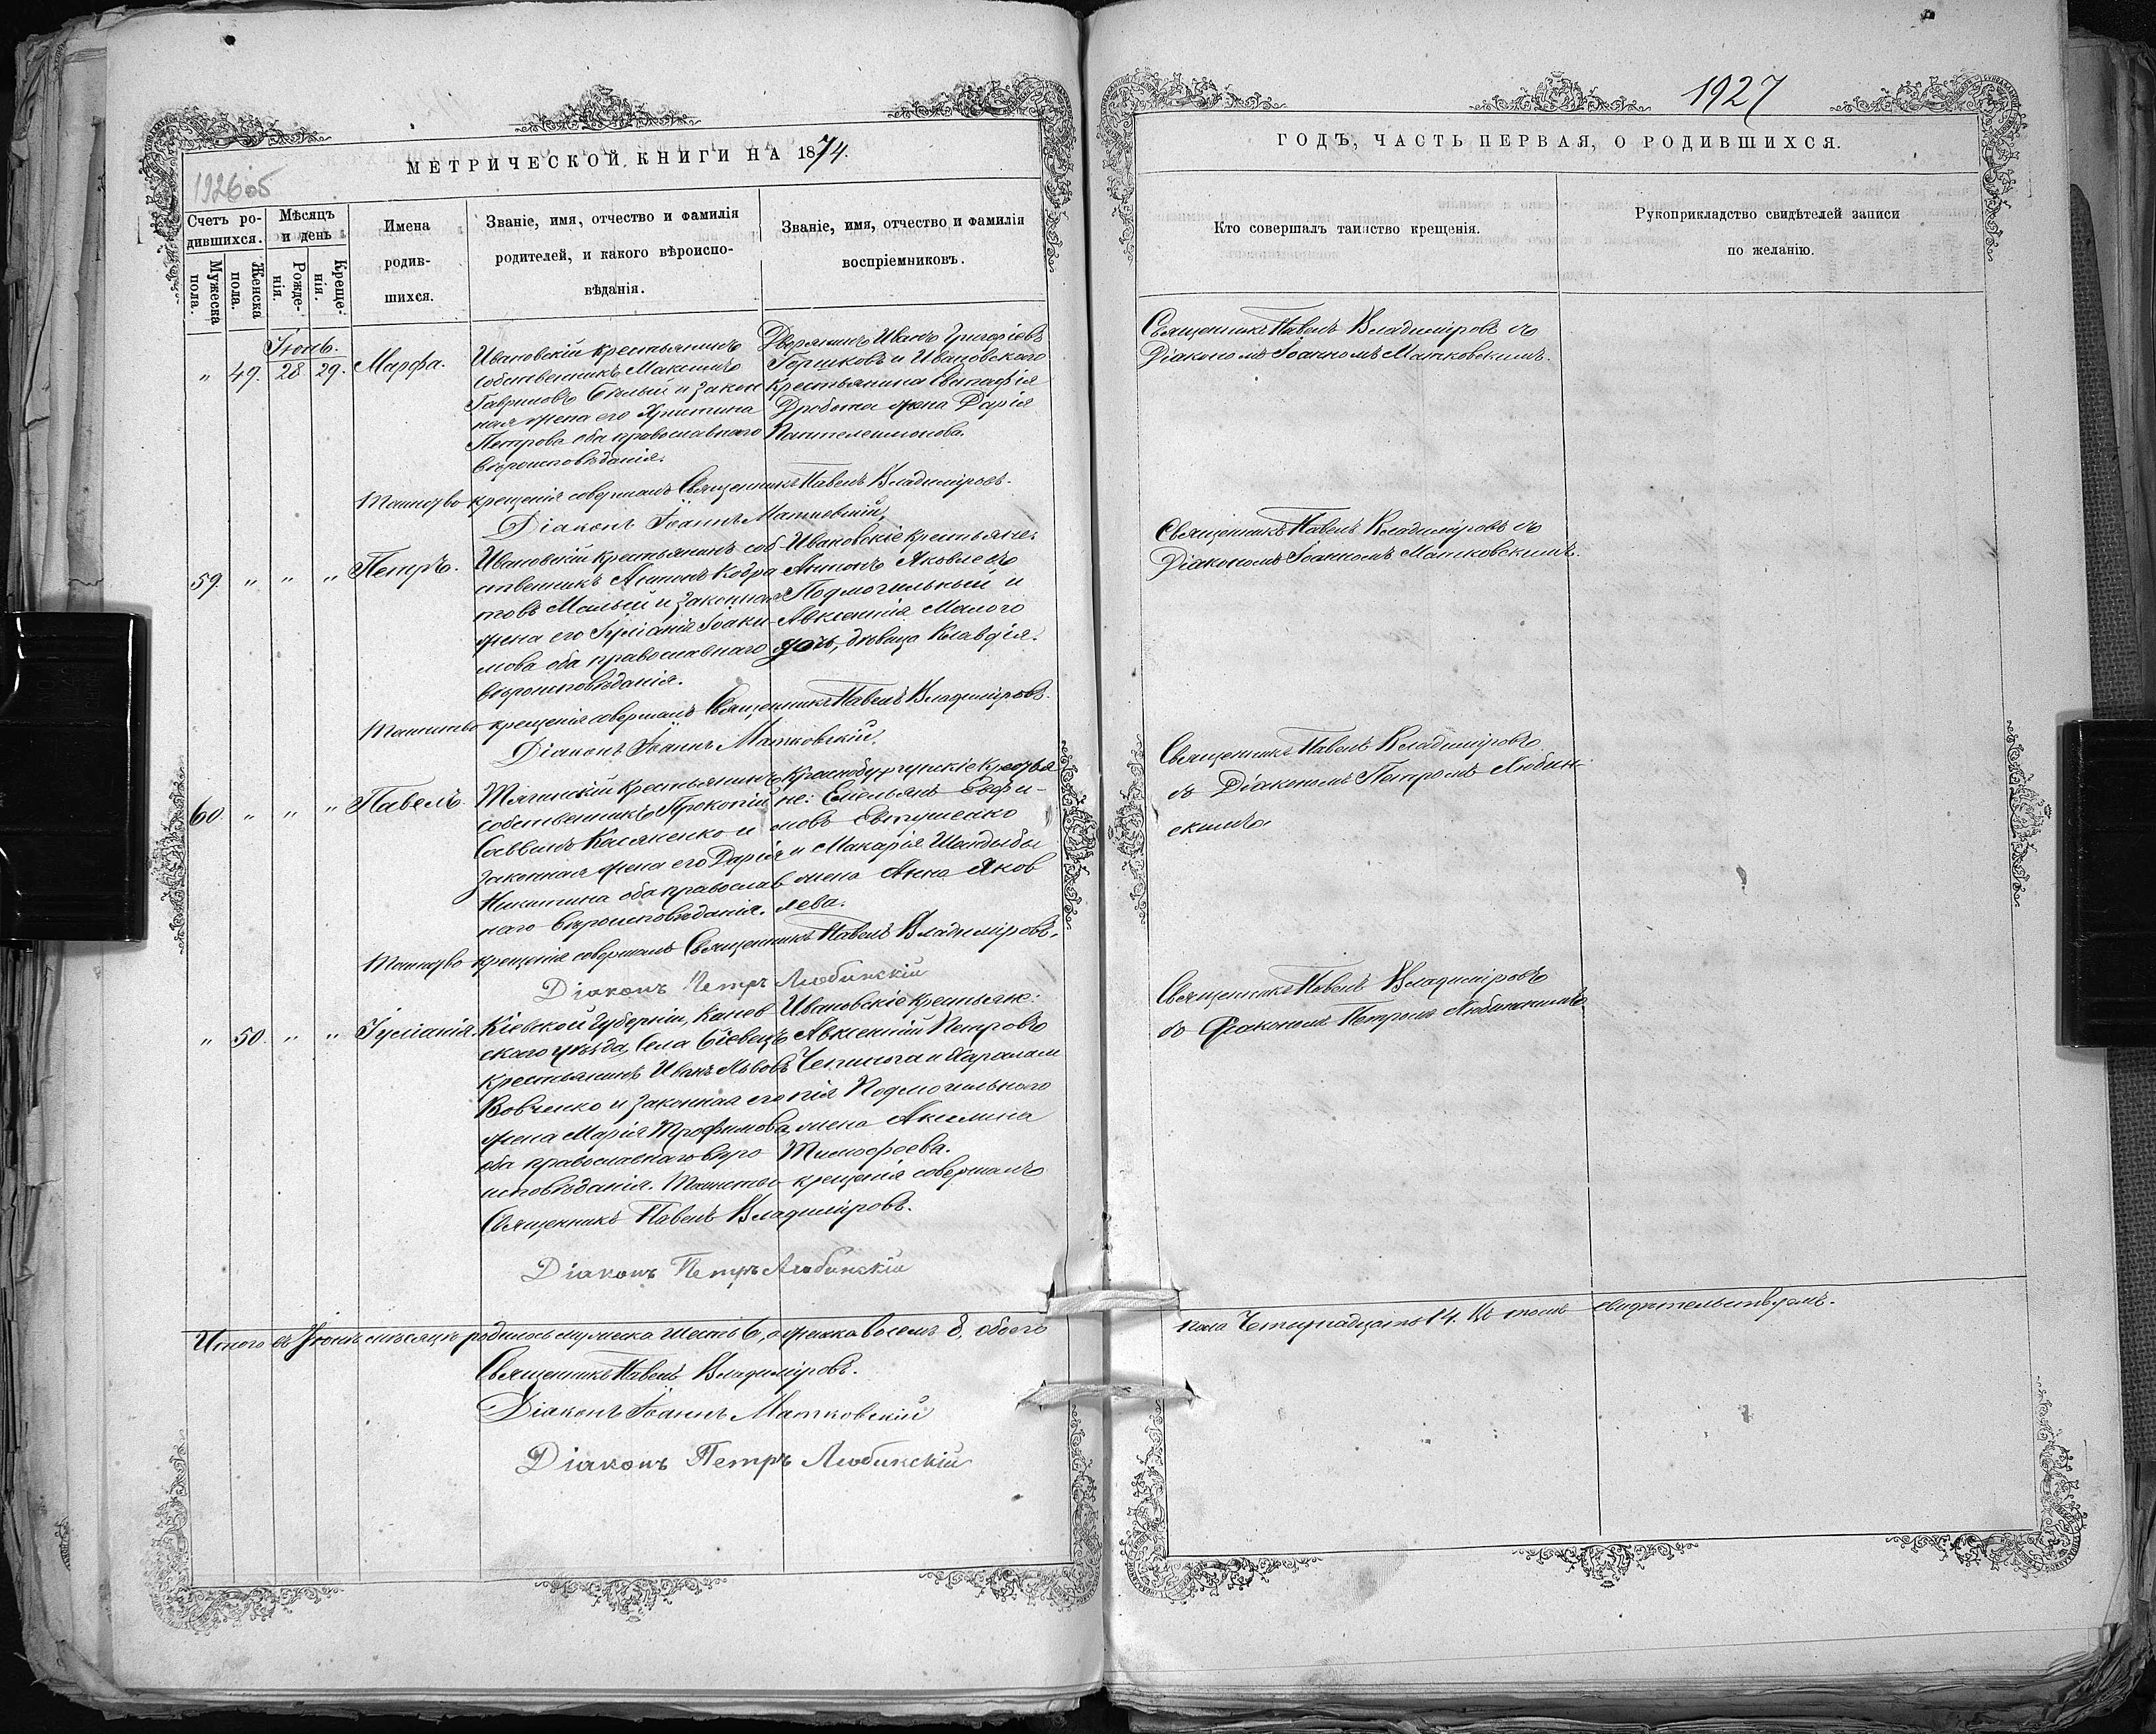 МЕТРИЧЕСКОЙ КНИГИ НА 1874.
1926об
Счетъ родившихся.
Мѣсяцъ и день
Мужеска пола.
Женска пола.
Рожденія.
Крещенія.
Имена
родив-
шихся.
Званіе, имя, отчество и фамилія
родителей, и какого вѣроиспо-
вѣданія.
Званіе, имя, отчество и фамилія
воспріемниковъ.
Іюнь.
" 49. 28. 29. Марфа.
Ивановскій крестьянинъ
собственникъ Максимъ
Гавриловъ Бѣлый и закон
ная жена его Христина
Петрова оба православнаго
вѣроисповѣданія.
Дворянинъ Иванъ Григоріевъ
Горшковъ и Ивановскаго
Крестьянина Евстафія
Дробота жена Дарія
Пантелеимонова.
Таинство крещенія совершалъ Священникъ Павелъ Владиміровъ.
Діаконъ Іоаннъ Матковскій.
59. " " " Петръ.
Ивановскій крестьянинъ соб-
ственникъ Антонъ Кодра-
товъ Малый и законная
жена его Іуліанія Іоаки-
мова оба православнаго
вѣроисповѣданія.
Ивановскіе крестьяне:
Антонъ Яковлевъ
Подмогильный и
Авксентія Малого
дочь, дѣвица Клавдія.
Таинство крещенія совершалъ Священникъ Павелъ Владиміровъ.
Діаконъ Іоаннъ Матковскій.
60. " " " Павелъ.
Тягинскій Крестьянинъ
собственникъ Прокопій
Саввинъ Касяненко и
законная жена его Дарія
Никитина оба православ
наго вѣроисповѣданія.
крестья
не: Емельянъ Евфи-
мовъ Евтушенко
и Макарія Шандыбы
жена Анна Яков
лева.
Таинство крещенія совершалъ Священникъ Павелъ Владиміровъ.
Діаконъ Петръ Любинскій
" 50. " " Іуліанія.
Кіевской Губерніи, Канев-
скаго уѣзда, Села Біевецъ
крестьянинъ Иванъ Львовъ
Вовченко и законная его
жена Марія Трофимова
оба православнаго вѣро
исповѣданія.
Ивановскіе крестьяне:
Авксентій Петровъ
Чепинога и Харалам
пія Подмогильного
жена Акилина
Тимофеева.
Таинство крещенія совершалъ
Священникъ Павелъ Владиміровъ.
Діаконъ Петръ Любинскій
Итого въ Іюнѣ мѣсяцѣ родилось мужеска шесть 6, а женска восемь 8, обоего
Священникъ Павелъ Владиміровъ.
Діаконъ Іоаннъ Матковскій
Діаконъ Петръ Любинскій
1927
ГОДЪ, ЧАСТЬ ПЕРВАЯ, О РОДИВШИХСЯ.
Кто совершалъ таинство крещенія.
Рукоприкладство свидѣтелей записи
по желанію.
Священникъ Павелъ Владиміровъ съ
Діакономъ Іоанномъ Матковскимъ.
Священникъ Павелъ Владиміровъ съ
Діакономъ Іоанномъ Матковскимъ.
Священникъ Павелъ Владиміровъ
съ Діакономъ Петромъ Любин-
скимъ
Священникъ Павелъ Владиміровъ
съ Діакономъ Петромъ Любинскимъ
пола Четырнадцать 14. Въ томъ свидѣтельствуемъ.